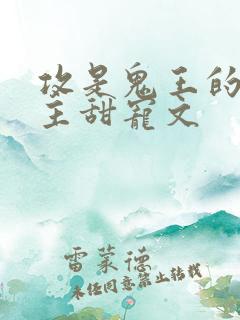 攻是鬼王的
主甜宠文
雷蒙德
未经同意禁止转载